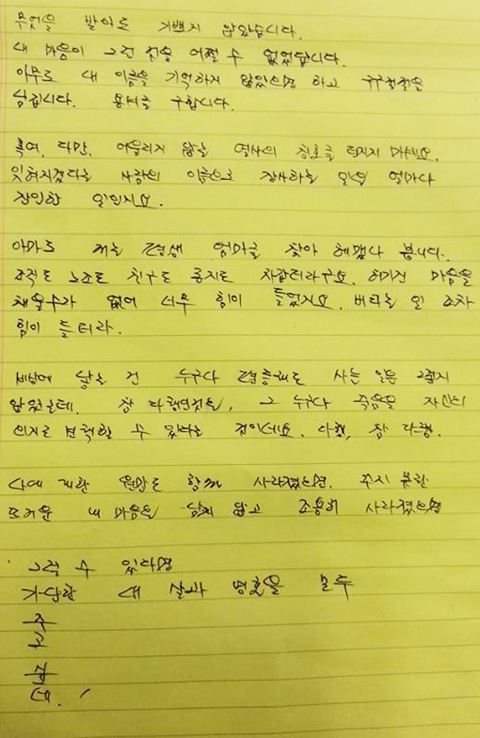 무엇을 받아도 기쁘지 않았습니다.
내 마음이 그런 것을 어쩔 수 없었답니다.
아무도 내 이름을 기억하지 않았으면 하고 구구절절
남깁니다. 용서를 구합니다.
혹여, 다만, 어울리지 않을 열사의 칭호를 던지지 마세요.
잊혀지겠다는 사람의 이름으로 장사하는 일은 얼마나
잔인한 일인지요.
아마도 저는 평생 엄마를 찾아 헤맸나 봅니다.
조직도 노조도 친구도 동지도 차갑더라구요. 허기진 마음을
채울수가 없어 너무 힘이 들었지요. 버티는 일 조차
힘이 들더라.
세상에 낳는 건 누구나 평등해도 사는 일은 그렇지
않았는데. 참 다행인것은, 그 누구나 죽음을 자신의
의지로 선택할 수 있다는 것이네요. 다행, 참 다행.
나에 대한 원망도 함께 사라졌으면. 주지 못한
뜨거운 내 마음은 남지 않고 조용히 사라졌으면
그럴 수 있다면
가난한 내 삶과 영혼을 모두
주
고
싶
네.